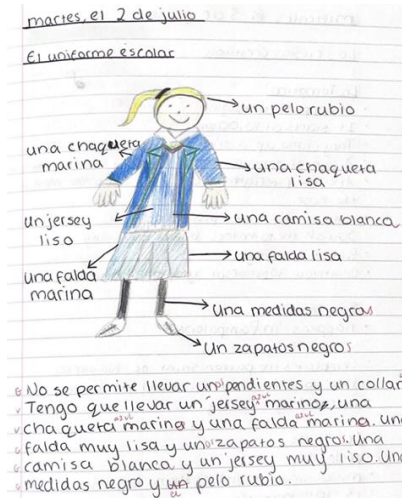 martes, el 2 de julio
El uniforme escolar
un pelo rubio
una chaqueta marina
una chaqueta lisa
un jersey liso
una camisa blanca
una falda lisa
una falda marina
una medidas negras
un zapatos negros
No se permite llevar un pendientes y un collar
azul
Tengo que llevar un jersey marino, una
azul azul
chaqueta marina y una falda marina. una
falda muy lisa y un zapatos negros. una
camisa blanca y un jersey muy liso. una
medidas negro y un pelo rubio.
el